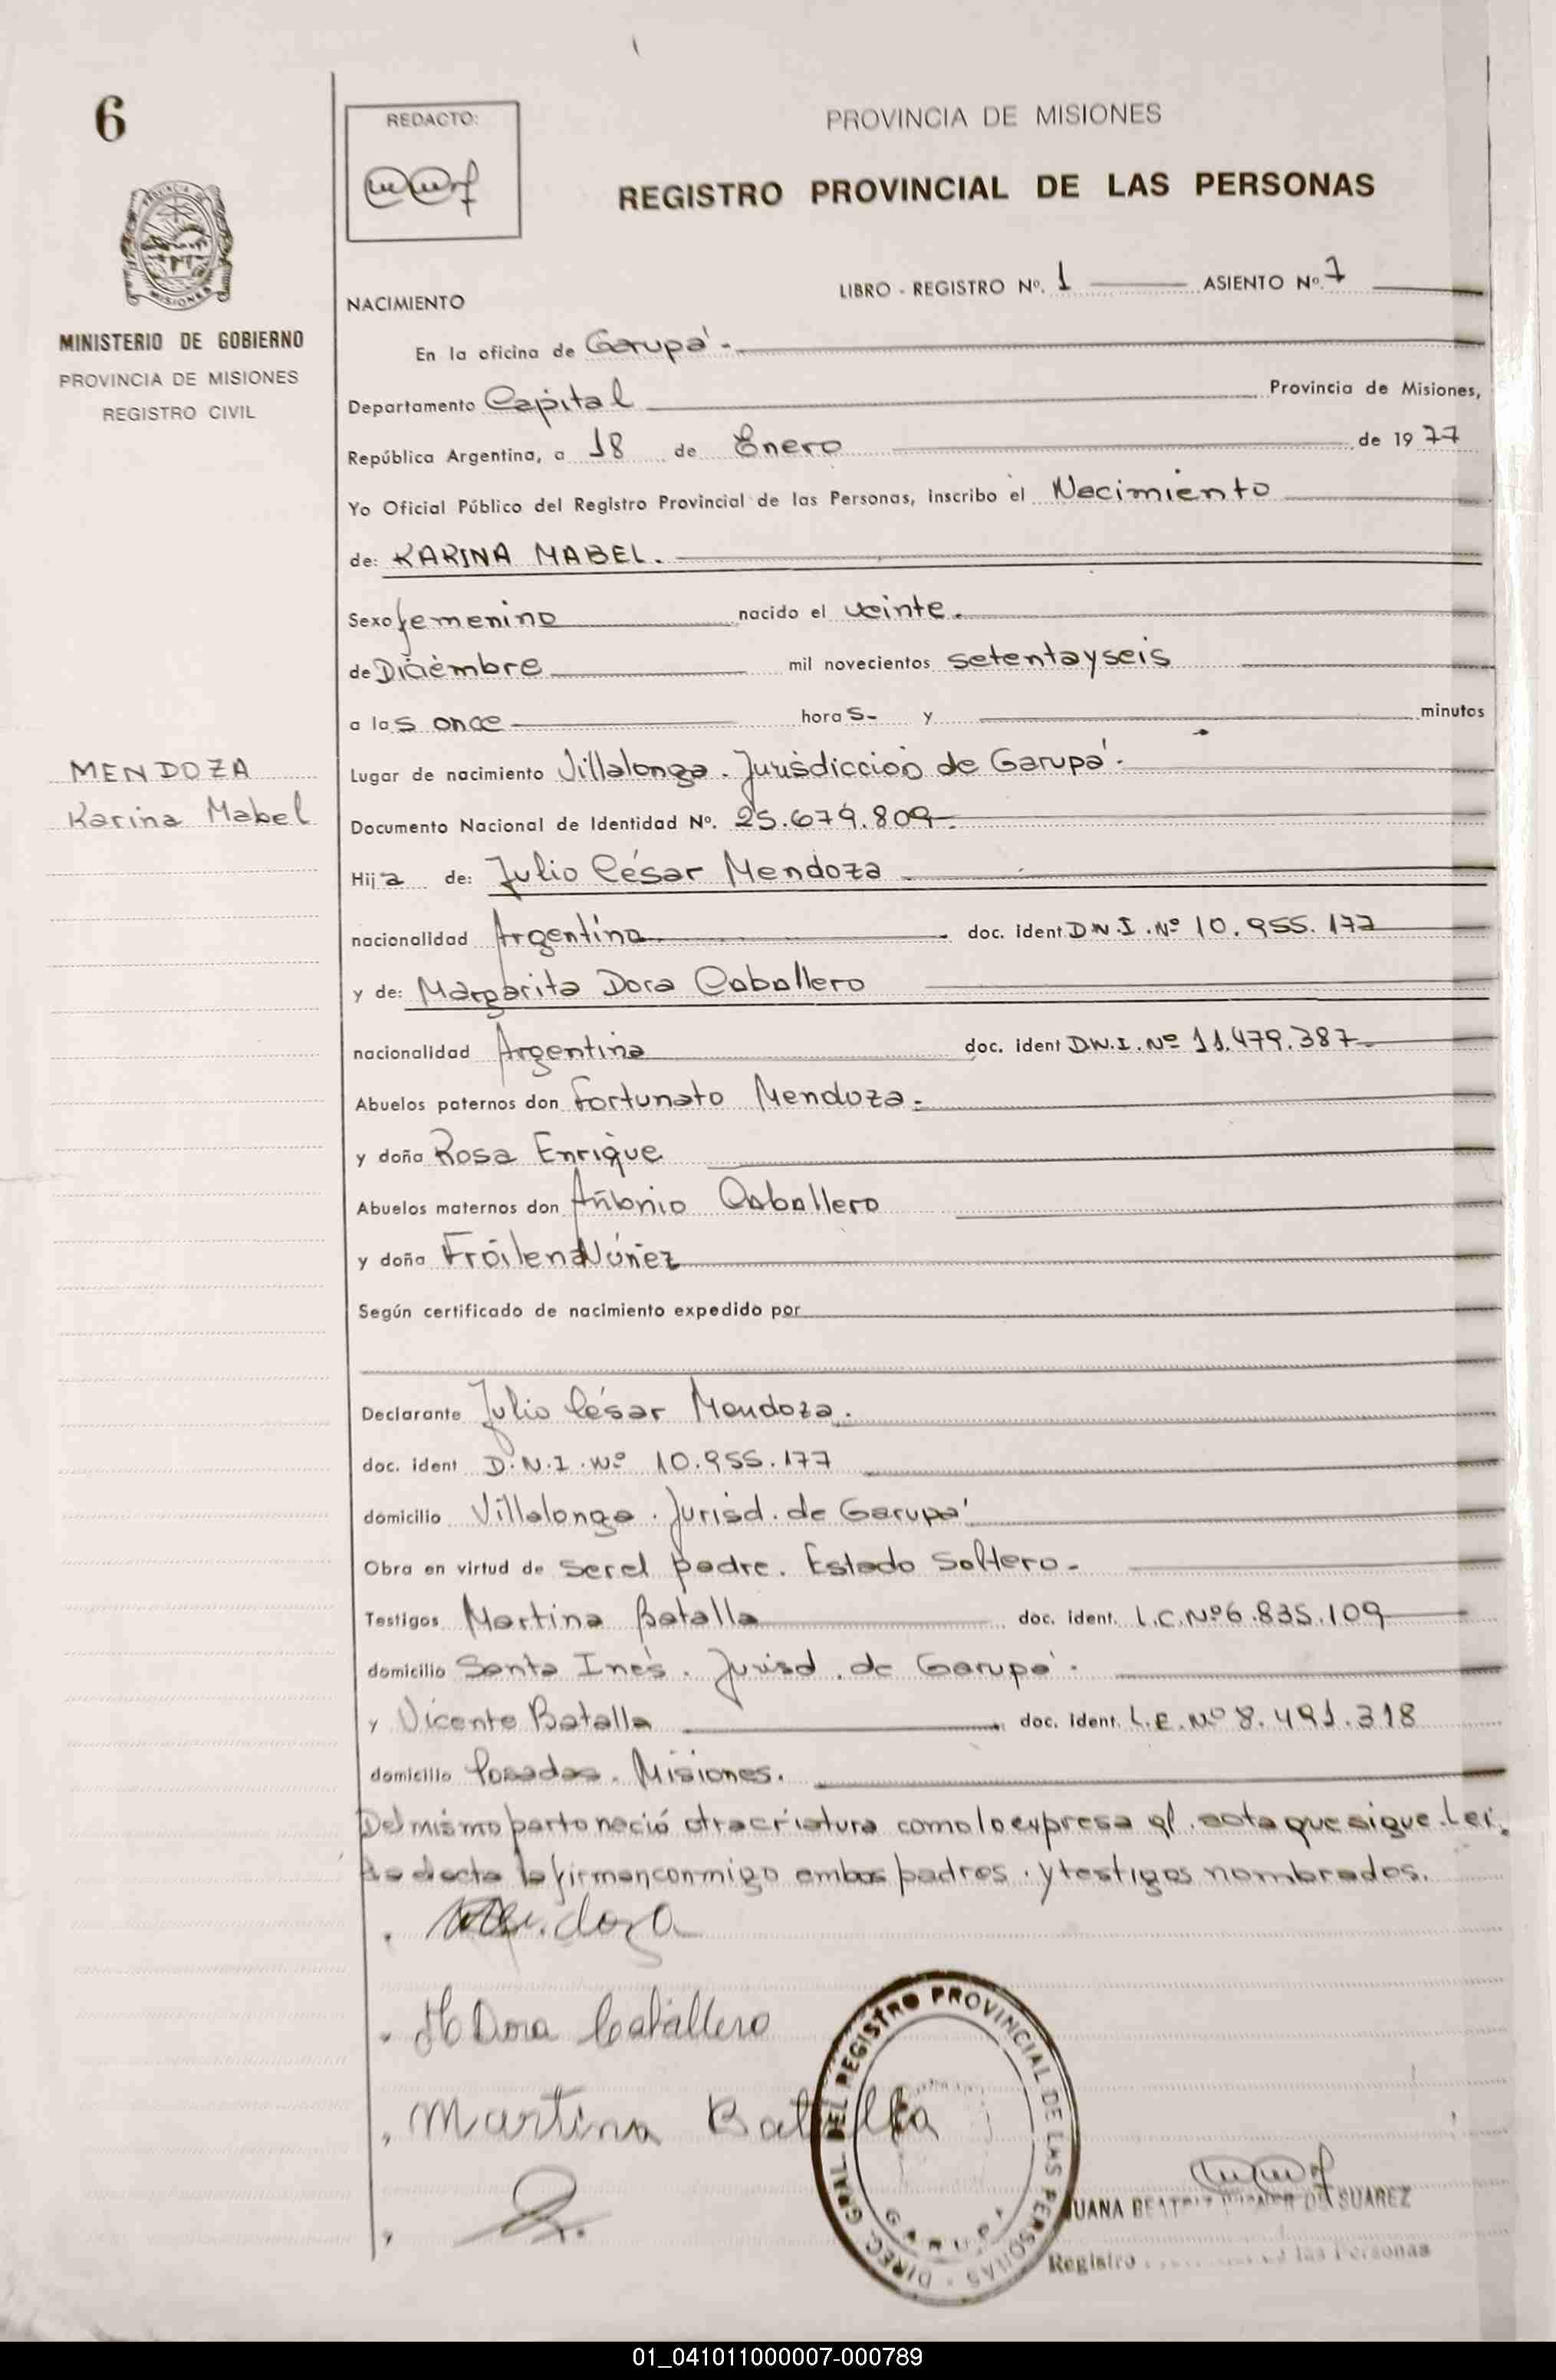 6
REDACTO:
PROVINCIA DE MISIONES
REGISTRO PROVINCIAL DE LAS PERSONAS
MISIONES
MINISTERIO DE GOBIERNO
PROVINCIA DE MISIONES
REGISTRO CIVIL
NACIMIENTO
LIBRO - REGISTRO Nº. 1 ASIENTO Nº. 7
En la oficina de Garupá.-
Departamento Capital Provincia de Misiones,
República Argentina, a 18 de Enero de 1977
Yo Oficial Público del Registro Provincial de las Personas, inscribo el Nacimiento
de: KARINA MABEL.
Sexo femenino nacido el veinte.
de Diciembre mil novecientos setentayseis
a las once horas- y minutos
MENDOZA
Karina Mabel
Lugar de nacimiento Villalonga. Jurisdiccion de Garupá.-
Documento Nacional de Identidad Nº. 25.679.809-
Hija de: Julio César Mendoza.
nacionalidad Argentina doc. ident D.N.I. Nº 10.955.177
y de: Margarita Dora Caballero
nacionalidad Argentina doc. ident D.N.I. Nº 11.479.387-
Abuelos paternos don Fortunato Mendoza.-
y doña Rosa Enrique
Abuelos maternos don Antonio Caballero
y doña Froilena Núñez
Según certificado de nacimiento expedido por
Declarante Julio César Mendoza.
doc. ident D.N.I. Nº 10.955.177
domicilio Villalonga. Jurisd. de Garupá
Obra en virtud de ser el padre. Estado Soltero-
Testigos Martina Batalla doc. ident. L.C. Nº 6.835.109
domicilio Santa Inés. Jurisd. de Garupá.
y Vicente Batalla doc. ident. L.E. Nº 8.491.318
domicilio Posadas. Misiones.
Del mismo parto nació otra criatura como lo expresa el acta que sigue. Leí-
da el acta la firman conmigo ambos padres. y testigos nombrados.
Mendoza
M Dora Caballero
Martina Batalla
DIREC. GRAL. DEL REGISTRO PROVINCIAL DE LAS PERSONAS -
GARUPA
JUANA BEATRIZ DE SUAREZ
Registro de las Personas
01_041011000007-000789